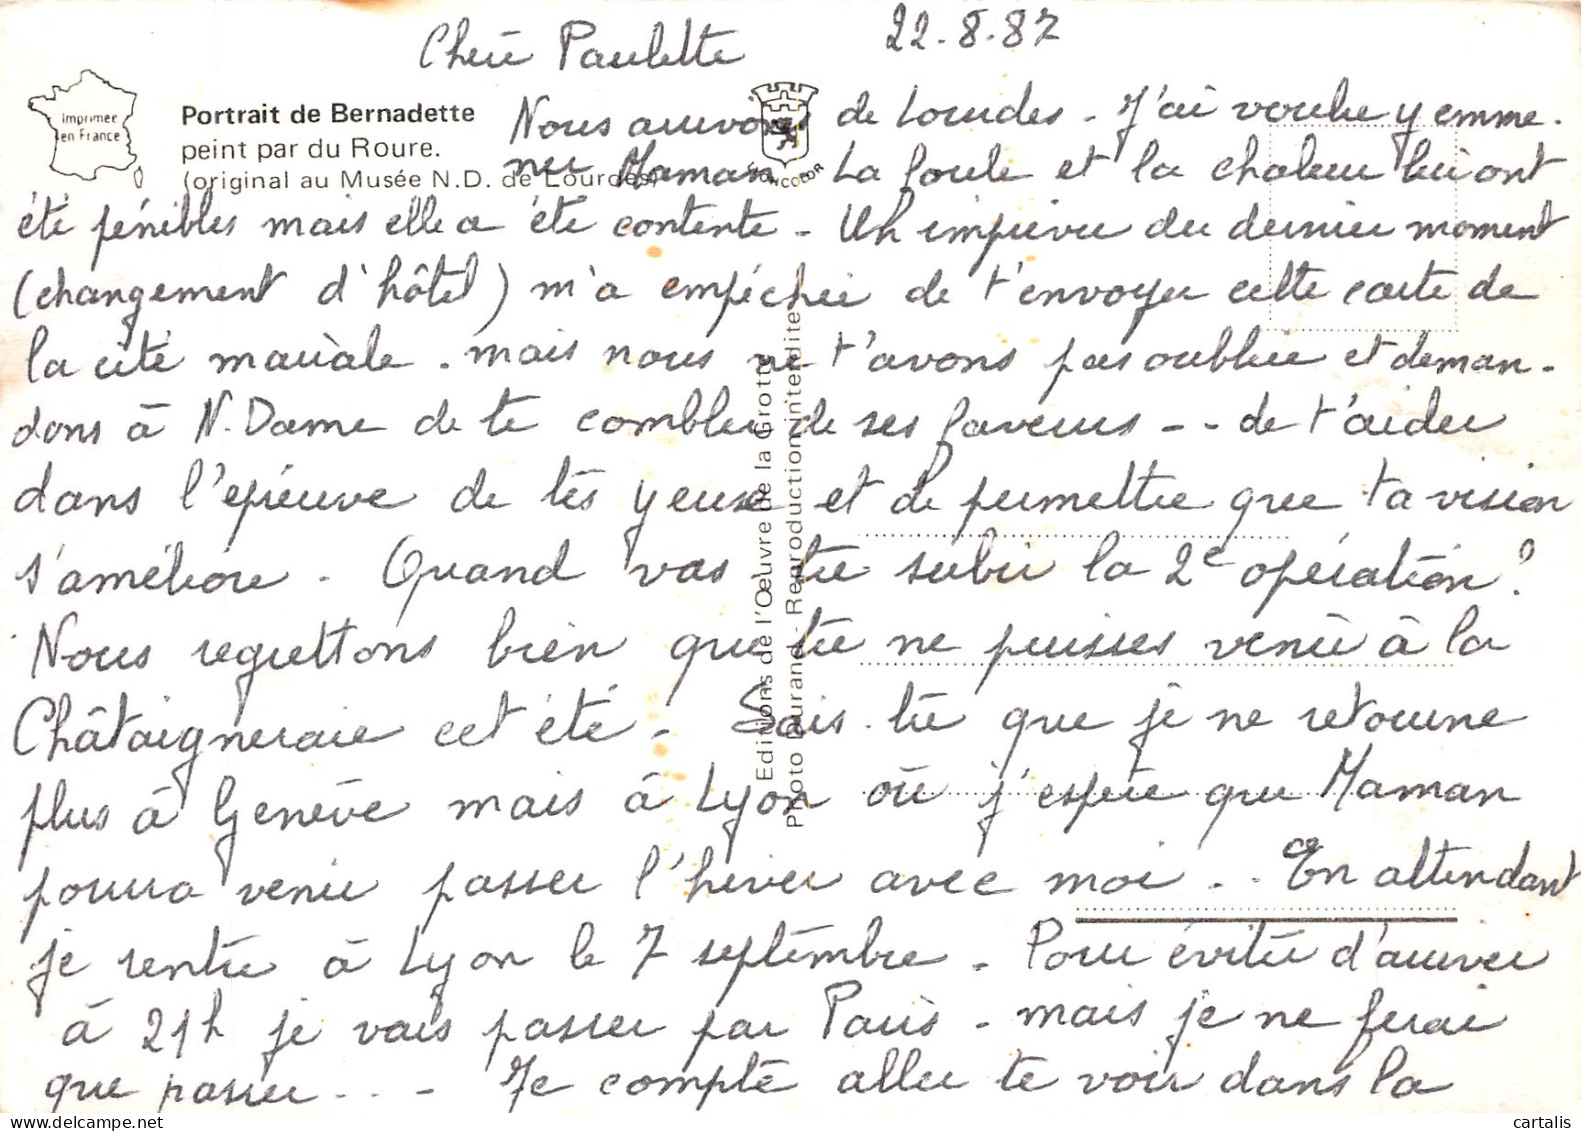 22.8.87
Chère Paulette
Imprimée
en France
Portrait de Bernadette
peint par du Roure.
(original au Musée N.D. de Lourdes)
Nous arrivons de Lourdes - J'ai voulu y emme-
ner Maman - La foule et la chaleur lui ont
été pénibles mais elle a été contente - Un imprévu du dernier moment
(changement d'hôtel) m'a empéchée de t'envoyer cette carte de
la cité mariale. mais nous ne t'avons pas oubliée et deman-
dons à N. Dame de te combler de ses faveurs - - de t'aider
dans l'épreuve de tes yeux et de permettre que ta vision
s'améliore - Quand vas tu subir la 2e opération ?
Nous regrettons bien que tu ne puisses venir à la
Châtaigneraie cet été - Sais-tu que je ne retourne
plus à Genève mais à Lyon où j'espère que Maman
pourra venir passer l'hiver avec moi .. En attendant
je rentre à Lyon le 7 septembre - Pour éviter d'arriver
à 21h je vais passer par Paris - mais je ne ferai
que passer... - Je compte aller te voir dans la
Editions de l'Œuvre de la Grotte
Photo Durand - Reproduction interdite
cartalis